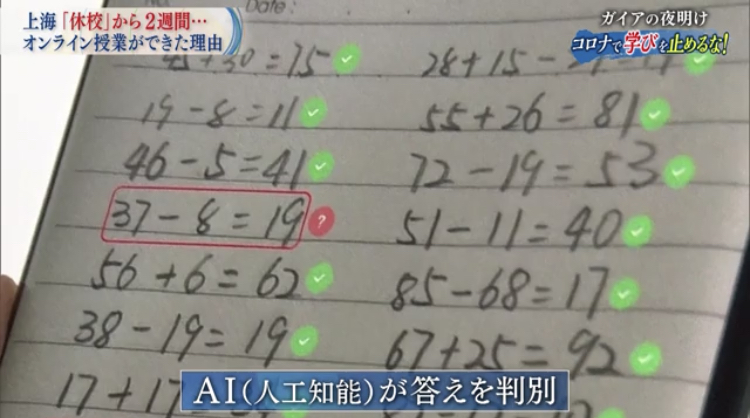 上海「休校」から2週間…
オンライン授業ができた理由
ガイアの夜明け
コロナで学びを止めるな!
Date:
45+30=75
19-8=11
46-5=41
37-8=19
?
56+6=62
38-19=19
17+17
28+15-
55+26=81
72-19=53
51-11=40
85-68=17
67+25=92
AI(人工知能)が答えを判別